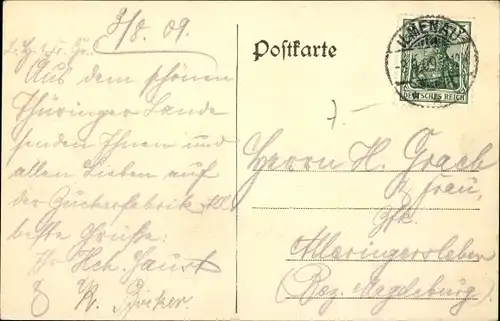 3/8.09.
Aus dem schönen
Thüringer Lande
senden Ihnen und
allen Lieben auf
der Zuckerfabrik
beste Grüße:
Hch. Faust
Postkarte
ILMENAU
DEUTSCHES REICH
Herrn H.
u. Frau,
Alleringersleben
(Bez. Magdeburg)